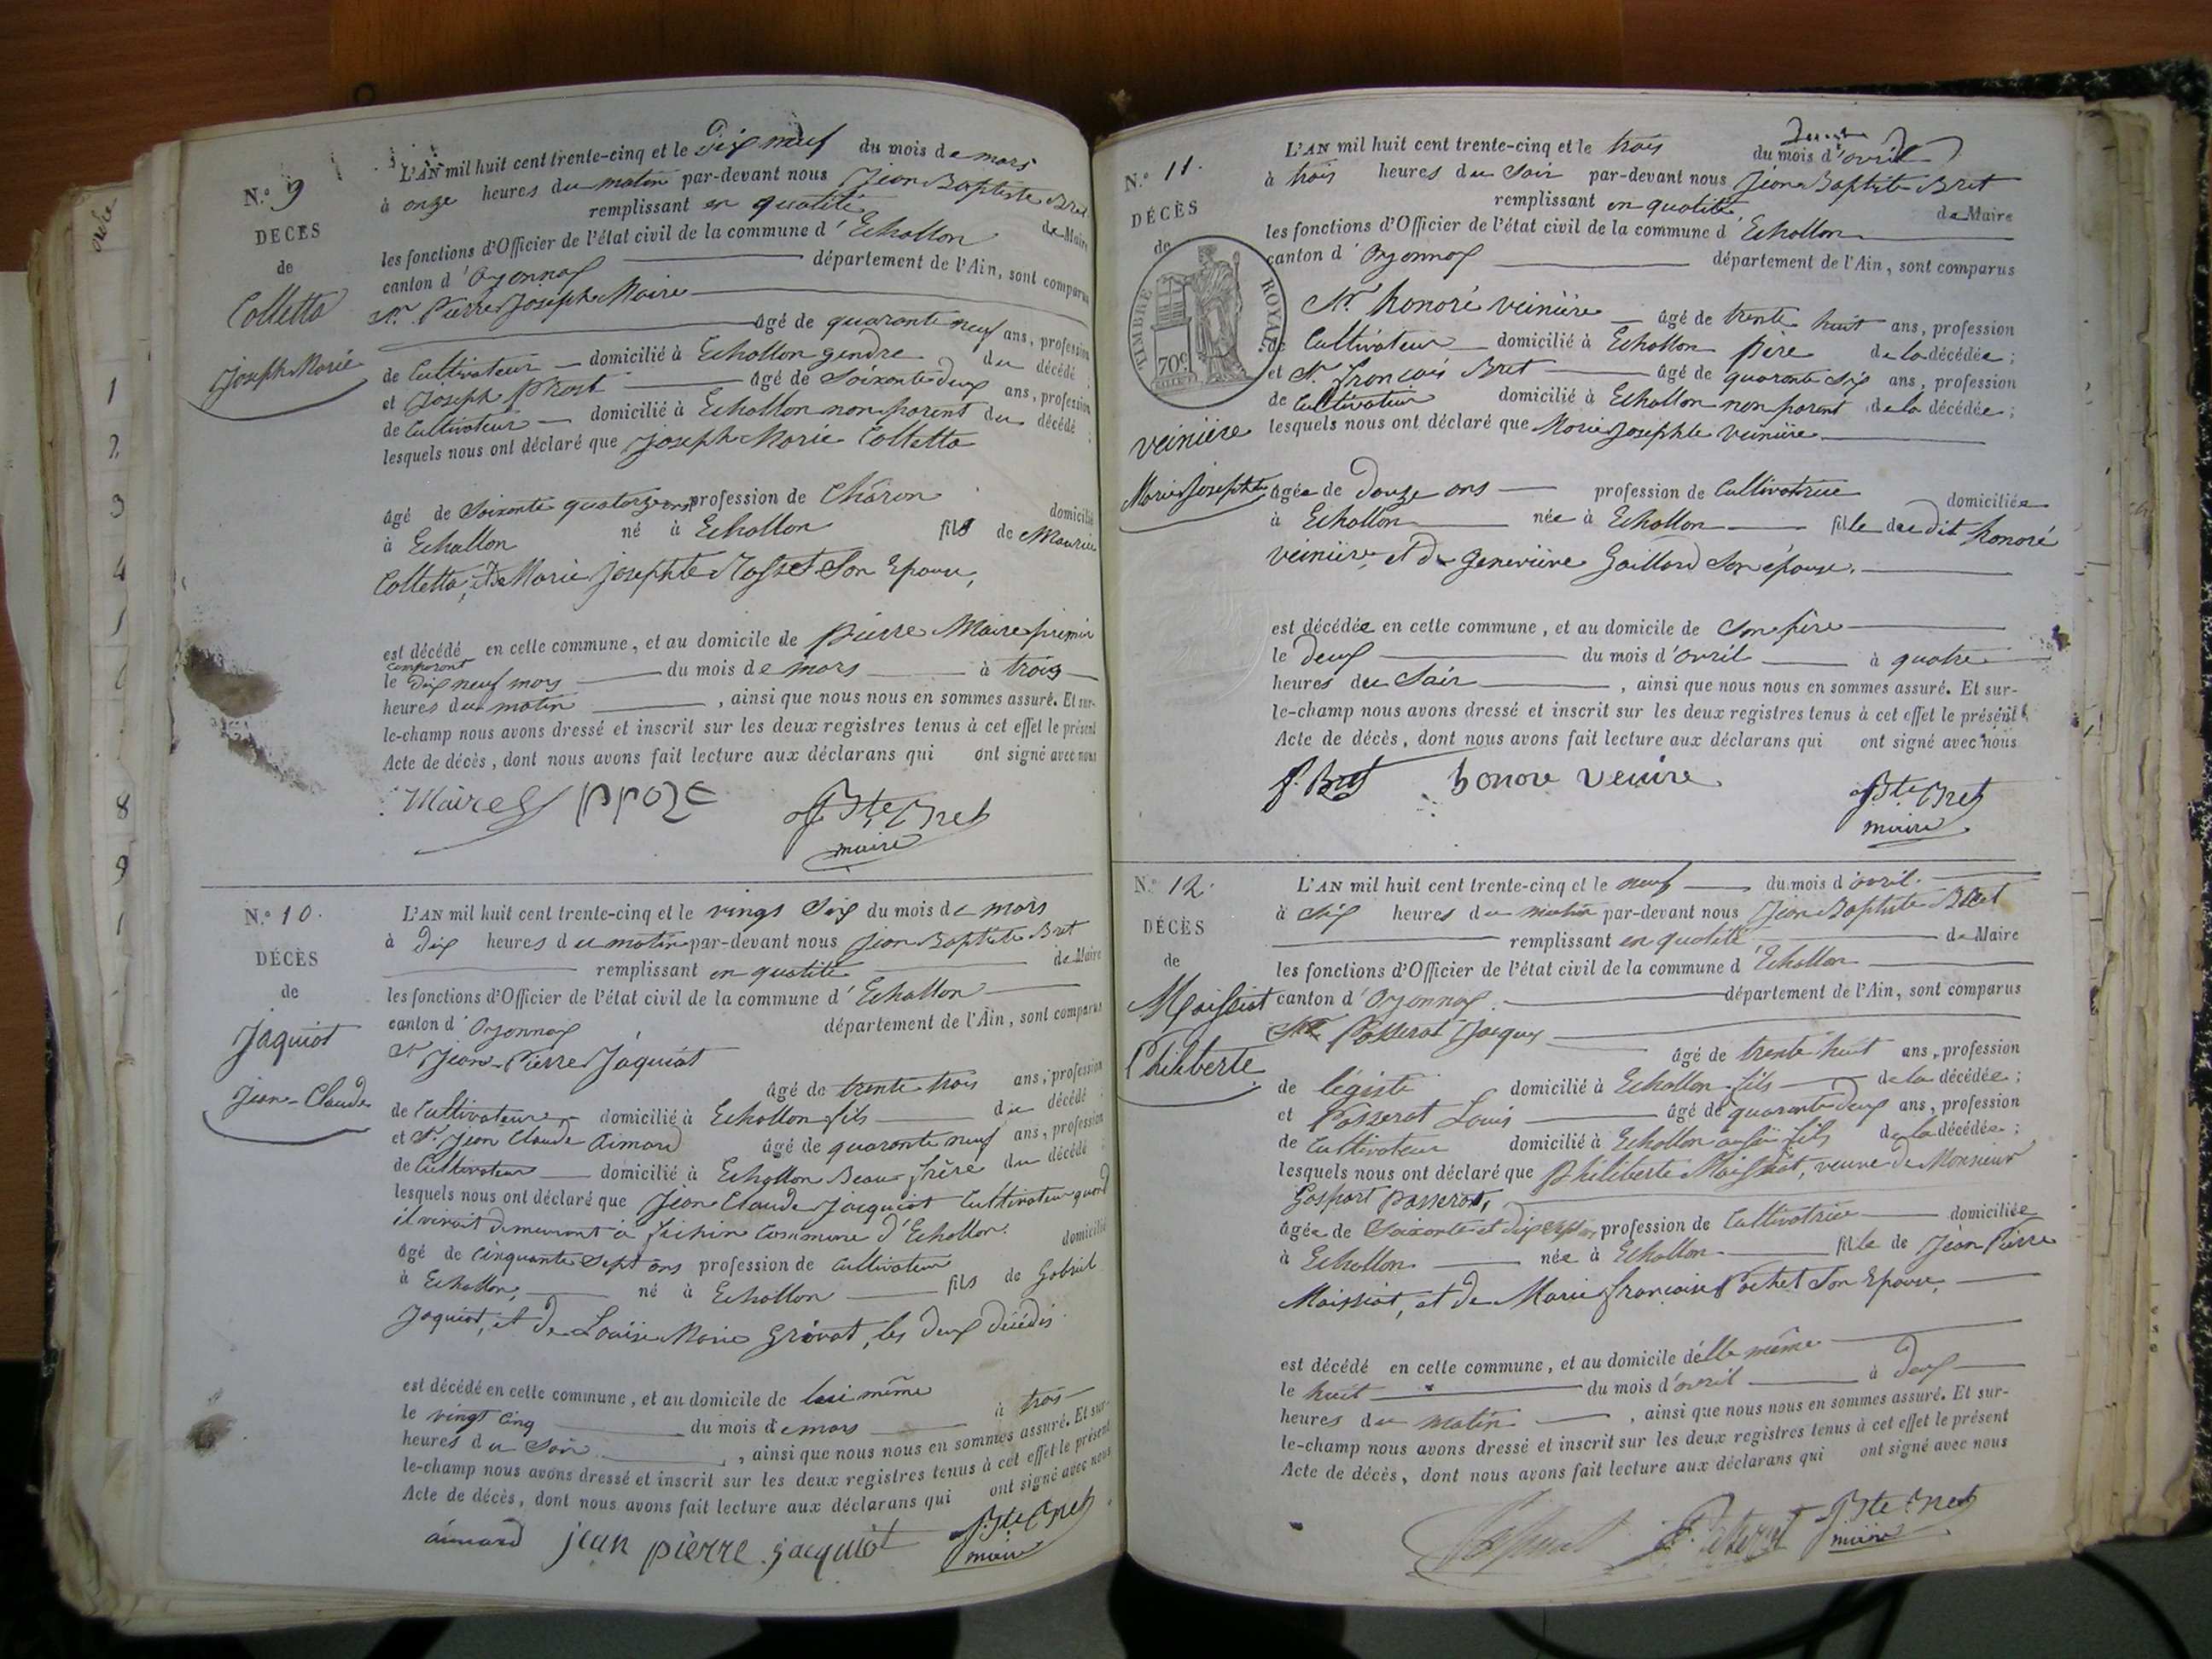 N.º 9
DÉCÈS
de
Colletta
Joseph Marie
L'AN mil huit cent trente-cinq et le Dix neuf du mois de mars
à onze heures du matin par-devant nous Jean Baptiste Bret
remplissant en qualité de Maire
les fonctions d'Officier de l'état civil de la commune d' Echallon
canton d' Oyonnax département de l'Ain, sont comparus
Sr. Pierre Joseph Maire
âgé de quarante neuf ans, profession
de Cultivateur domicilié à Echallon gendre du décédé ;
et Joseph Prost âgé de Soixante deux ans, profession
de Cultivateur domicilié à Echallon non parent du décédé ;
lesquels nous ont déclaré que Joseph Marie Colletta
âgé de Soixante quatorze ans profession de Charon domicilié
à Echallon né à Echallon fils de Maurice
Colletta, et de Marie Josephte Rosset Son Epouse,
est décédé en cette commune, et au domicile de pierre Maire premier
comparant
le dix neuf mars du mois de mars à trois
heures du matin , ainsi que nous nous en sommes assuré. Et sur-
le-champ nous avons dressé et inscrit sur les deux registres tenus à cet effet le présent
Acte de décès, dont nous avons fait lecture aux déclarans qui ont signé avec nous
Maire
J Bte Bret
maire
N.º 10.
DÉCÈS
de
Jaquiot
Jean-Claude
L'AN mil huit cent trente-cinq et le vingt Six du mois de mars
à Dix heures du matin par-devant nous Jean Baptiste Bret
remplissant en qualité de Maire
les fonctions d'Officier de l'état civil de la commune d' Echallon
canton d' Oyonnax département de l'Ain, sont comparus
Sr Jean-Pierre Jaquiot
âgé de trente trois ans, profession
de Cultivateur domicilié à Echallon fils du décédé ;
et Sr. Jean Claude Aimard âgé de quarante neuf ans, profession
de Cultivateur domicilié à Echallon Beau frère du décédé ;
lesquels nous ont déclaré que Jean Claude Jacquiot Cultivateur quand
il vivait demeurant à commune d'Echallon.
âgé de Cinquante Sept ans profession de Cultivateur domicilié
à Echallon, né à Echallon fils de Gabriel
Jaquiot, et de Louise Marie Grivat, les deux décédés
est décédé en cette commune, et au domicile de lui même
le vingt cinq du mois de mars à trois
heures du Soir , ainsi que nous nous en sommes assuré. Et sur-
le-champ nous avons dressé et inscrit sur les deux registres tenus à cet effet le présent
Acte de décès, dont nous avons fait lecture aux déclarans qui ont signé avec nous
aimard jean pierre jacquiot J. Bte Bret
maire
N.º 11.
DÉCÈS
de
TIMBRE ROYAL
70c.
veinière
Marie Josephte
L'AN mil huit cent trente-cinq et le trois du mois d'avril
à trois heures du Soir par-devant nous Jean Baptiste Bret
remplissant en qualité de Maire
les fonctions d'Officier de l'état civil de la commune d' Echallon
canton d' Oyonnax département de l'Ain, sont comparus
Sr. honoré veinière âgé de trente huit ans, profession
de Cultivateur domicilié à Echallon père de la décédée ;
et Sr. françois Bret âgé de quarante Six ans, profession
de Cultivateur domicilié à Echallon non parent de la décédée ;
lesquels nous ont déclaré que Marie Josephte veinière
âgée de Douze ans profession de Cultivatrice domiciliée
à Echallon née à Echallon fille du dit honoré
veinière, et de Geneviève Gaillard Son épouse.
est décédée en cette commune, et au domicile de Son père
le Deux du mois d'avril à quatre
heures du Soir , ainsi que nous nous en sommes assuré. Et sur-
le-champ nous avons dressé et inscrit sur les deux registres tenus à cet effet le présent
Acte de décès, dont nous avons fait lecture aux déclarans qui ont signé avec nous
f. Bret honore venire J Bte Bret
maire
N.º 12.
DÉCÈS
de
Moissiat
Philiberte
L'AN mil huit cent trente-cinq et le neuf du mois d'avril.
à Six heures du matin par-devant nous Jean Baptiste Bret
remplissant en qualité de Maire
les fonctions d'Officier de l'état civil de la commune d' Echallon
canton d' Oyonnax département de l'Ain, sont comparus
Passerat Jacques
âgé de trente huit ans, profession
de légiste domicilié à Echallon fils de la décédée ;
et Passerat Louis âgé de quarante deux ans, profession
de Cultivateur domicilié à Echallon aussi fils de la décédée ;
lesquels nous ont déclaré que Philiberte Moissiat, veuve de Monsieur
Gaspart Passerat,
âgée de Soixante et dix sept ans profession de Cultivatrice domiciliée
à Echallon née à Echallon fille de Jean Pierre
Moissiat, et de Marie françoise Pochet Son Epouse,
est décédé en cette commune, et au domicile d'elle même
le huit du mois d'avril à Deux
heures du matin , ainsi que nous nous en sommes assuré. Et sur-
le-champ nous avons dressé et inscrit sur les deux registres tenus à cet effet le présent
Acte de décès, dont nous avons fait lecture aux déclarans qui ont signé avec nous
J Bte Bret
maire
1
2
3
4
8
9